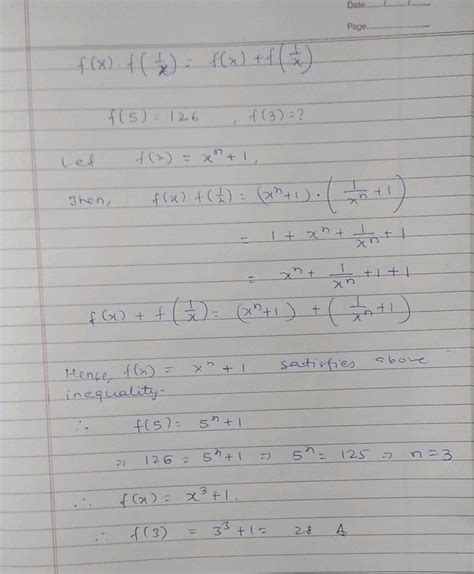 Date....../....../......
Page................
f(x) f(1/x) = f(x) + f(1/x)
f(5) = 126 , f(3) = ?
Let f(x) = xⁿ + 1,
Then, f(x) f(1/x) = (xⁿ+1) · (1/xⁿ + 1)
= 1 + xⁿ + 1/xⁿ + 1
= xⁿ + 1/xⁿ + 1 + 1
f(x) + f(1/x) = (xⁿ+1) + (1/xⁿ + 1)
Hence, f(x) = xⁿ + 1 satisfies above
inequality-
∴ f(5) = 5ⁿ + 1
⇒ 126 = 5ⁿ + 1 ⇒ 5ⁿ = 125 ⇒ n = 3
∴ f(x) = x³ + 1.
∴ f(3) = 3³ + 1 = 28